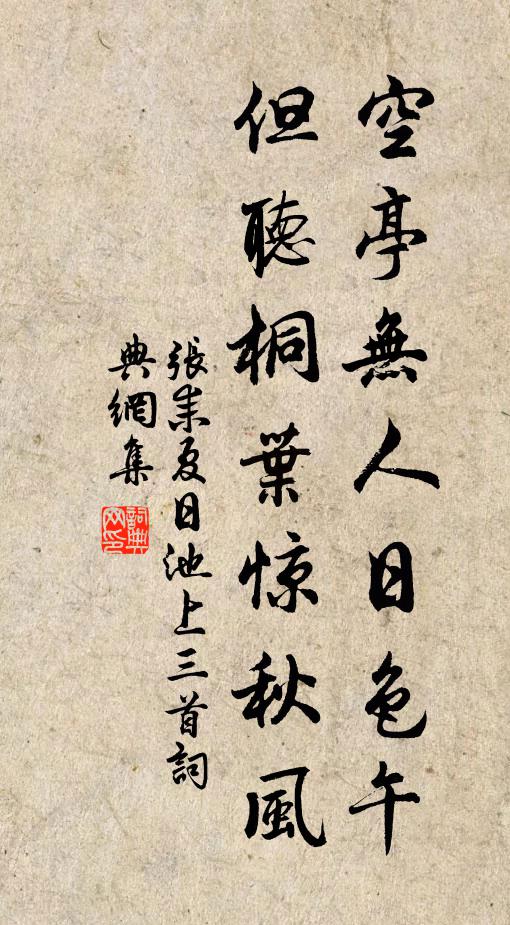 空亭無人日色午
但聽桐葉惊秋風
張耒夏日池上三首詞
典網集
詞典网印